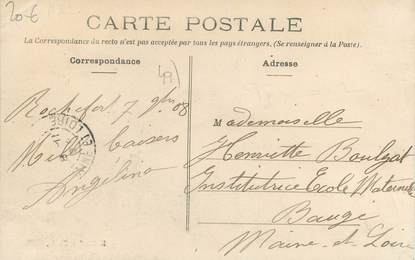 20 €
CARTE POSTALE
La Correspondance du recto n'est pas acceptée par tous les pays étrangers. (Se renseigner à la Poste).
Correspondance
Adresse
Rochefort 7 9bre 08
Mille baisers
Angélina
Mademoiselle
Henriette Boulgat
Institutrice Ecole Maternelle
Baugé
Maine-et-Loire